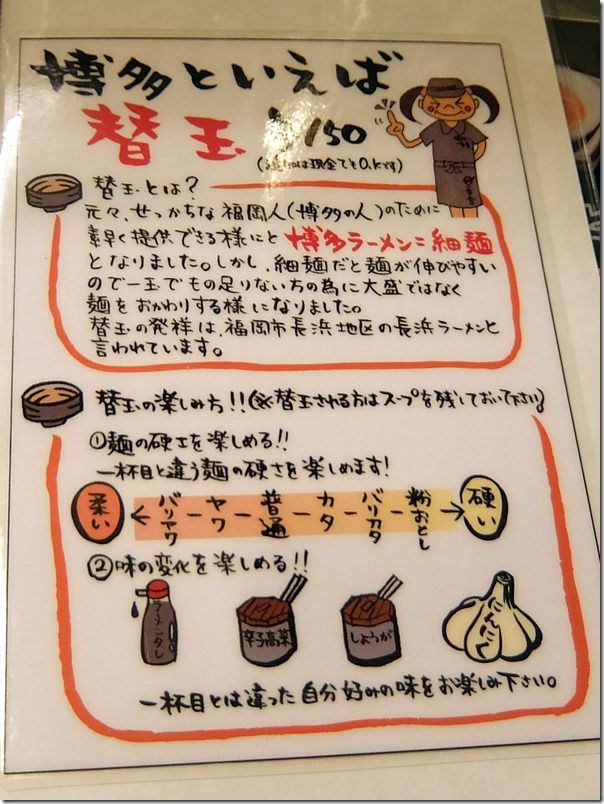 博多といえば
替玉 ¥150
(追加は現金でもO.Kです)
替玉とは?
元々、せっかちな福岡人(博多の人)のために
素早く提供できる様にと博多ラーメン=細麺
となりました。しかし、細麺だと麺が伸びやすい
ので一玉でもの足りない方の為に大盛ではなく
麺をおかわりする様になりました。
替玉の発祥は、福岡市長浜地区の長浜ラーメンと
言われています。
替玉の楽しみ方!!(※替玉される方はスープを残しておいて下さい)
①麺の硬さを楽しめる!!
一杯目と違う麺の硬さを楽しめます!
柔い ← バリヤワ - ヤワ - 普通 - カタ - バリカタ - 粉おとし → 硬い
②味の変化を楽しめる!!
ラーメンタレ 辛子高菜 しょうが にんにく
一杯目とは違った自分好みの味をお楽しみ下さい。